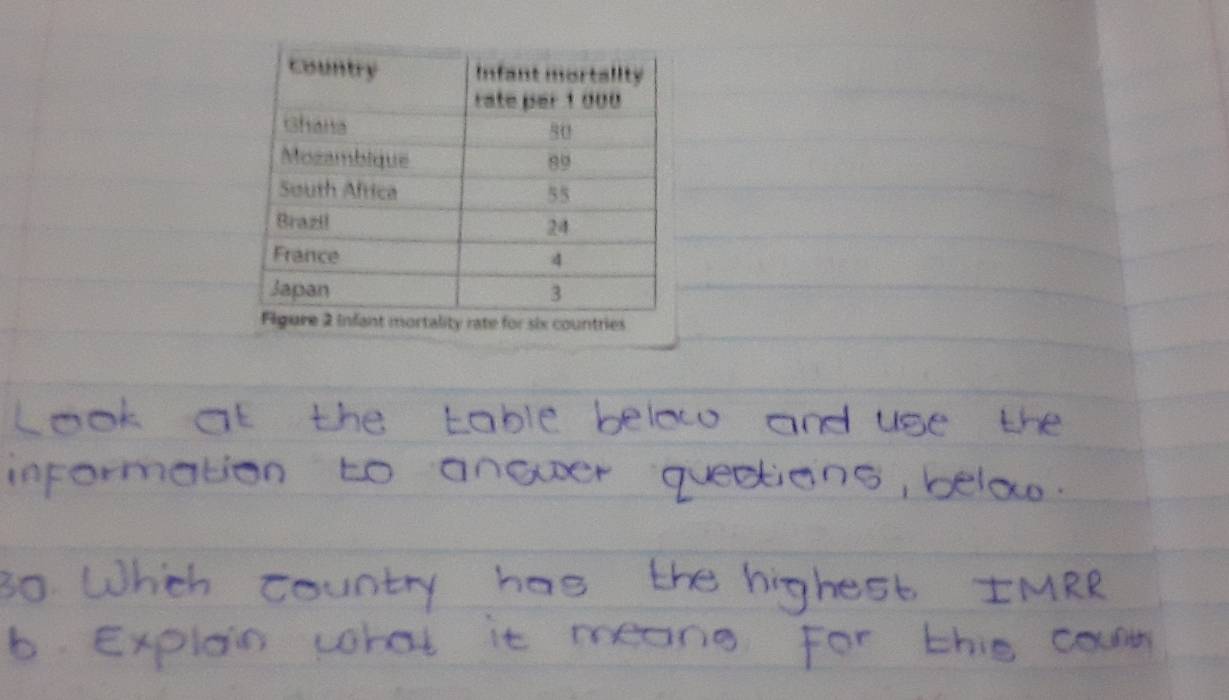 Country Infant mortality
rate per 1 000
Ghana 50
Mozambique 89
South Africa 55
Brazil 24
France 4
Japan 3
Figure 2 Infant mortality rate for six countries
Look at the table below and use the
information to answer questions, below.
30. Which country has the highest IMRR
b. Explain what it means for this